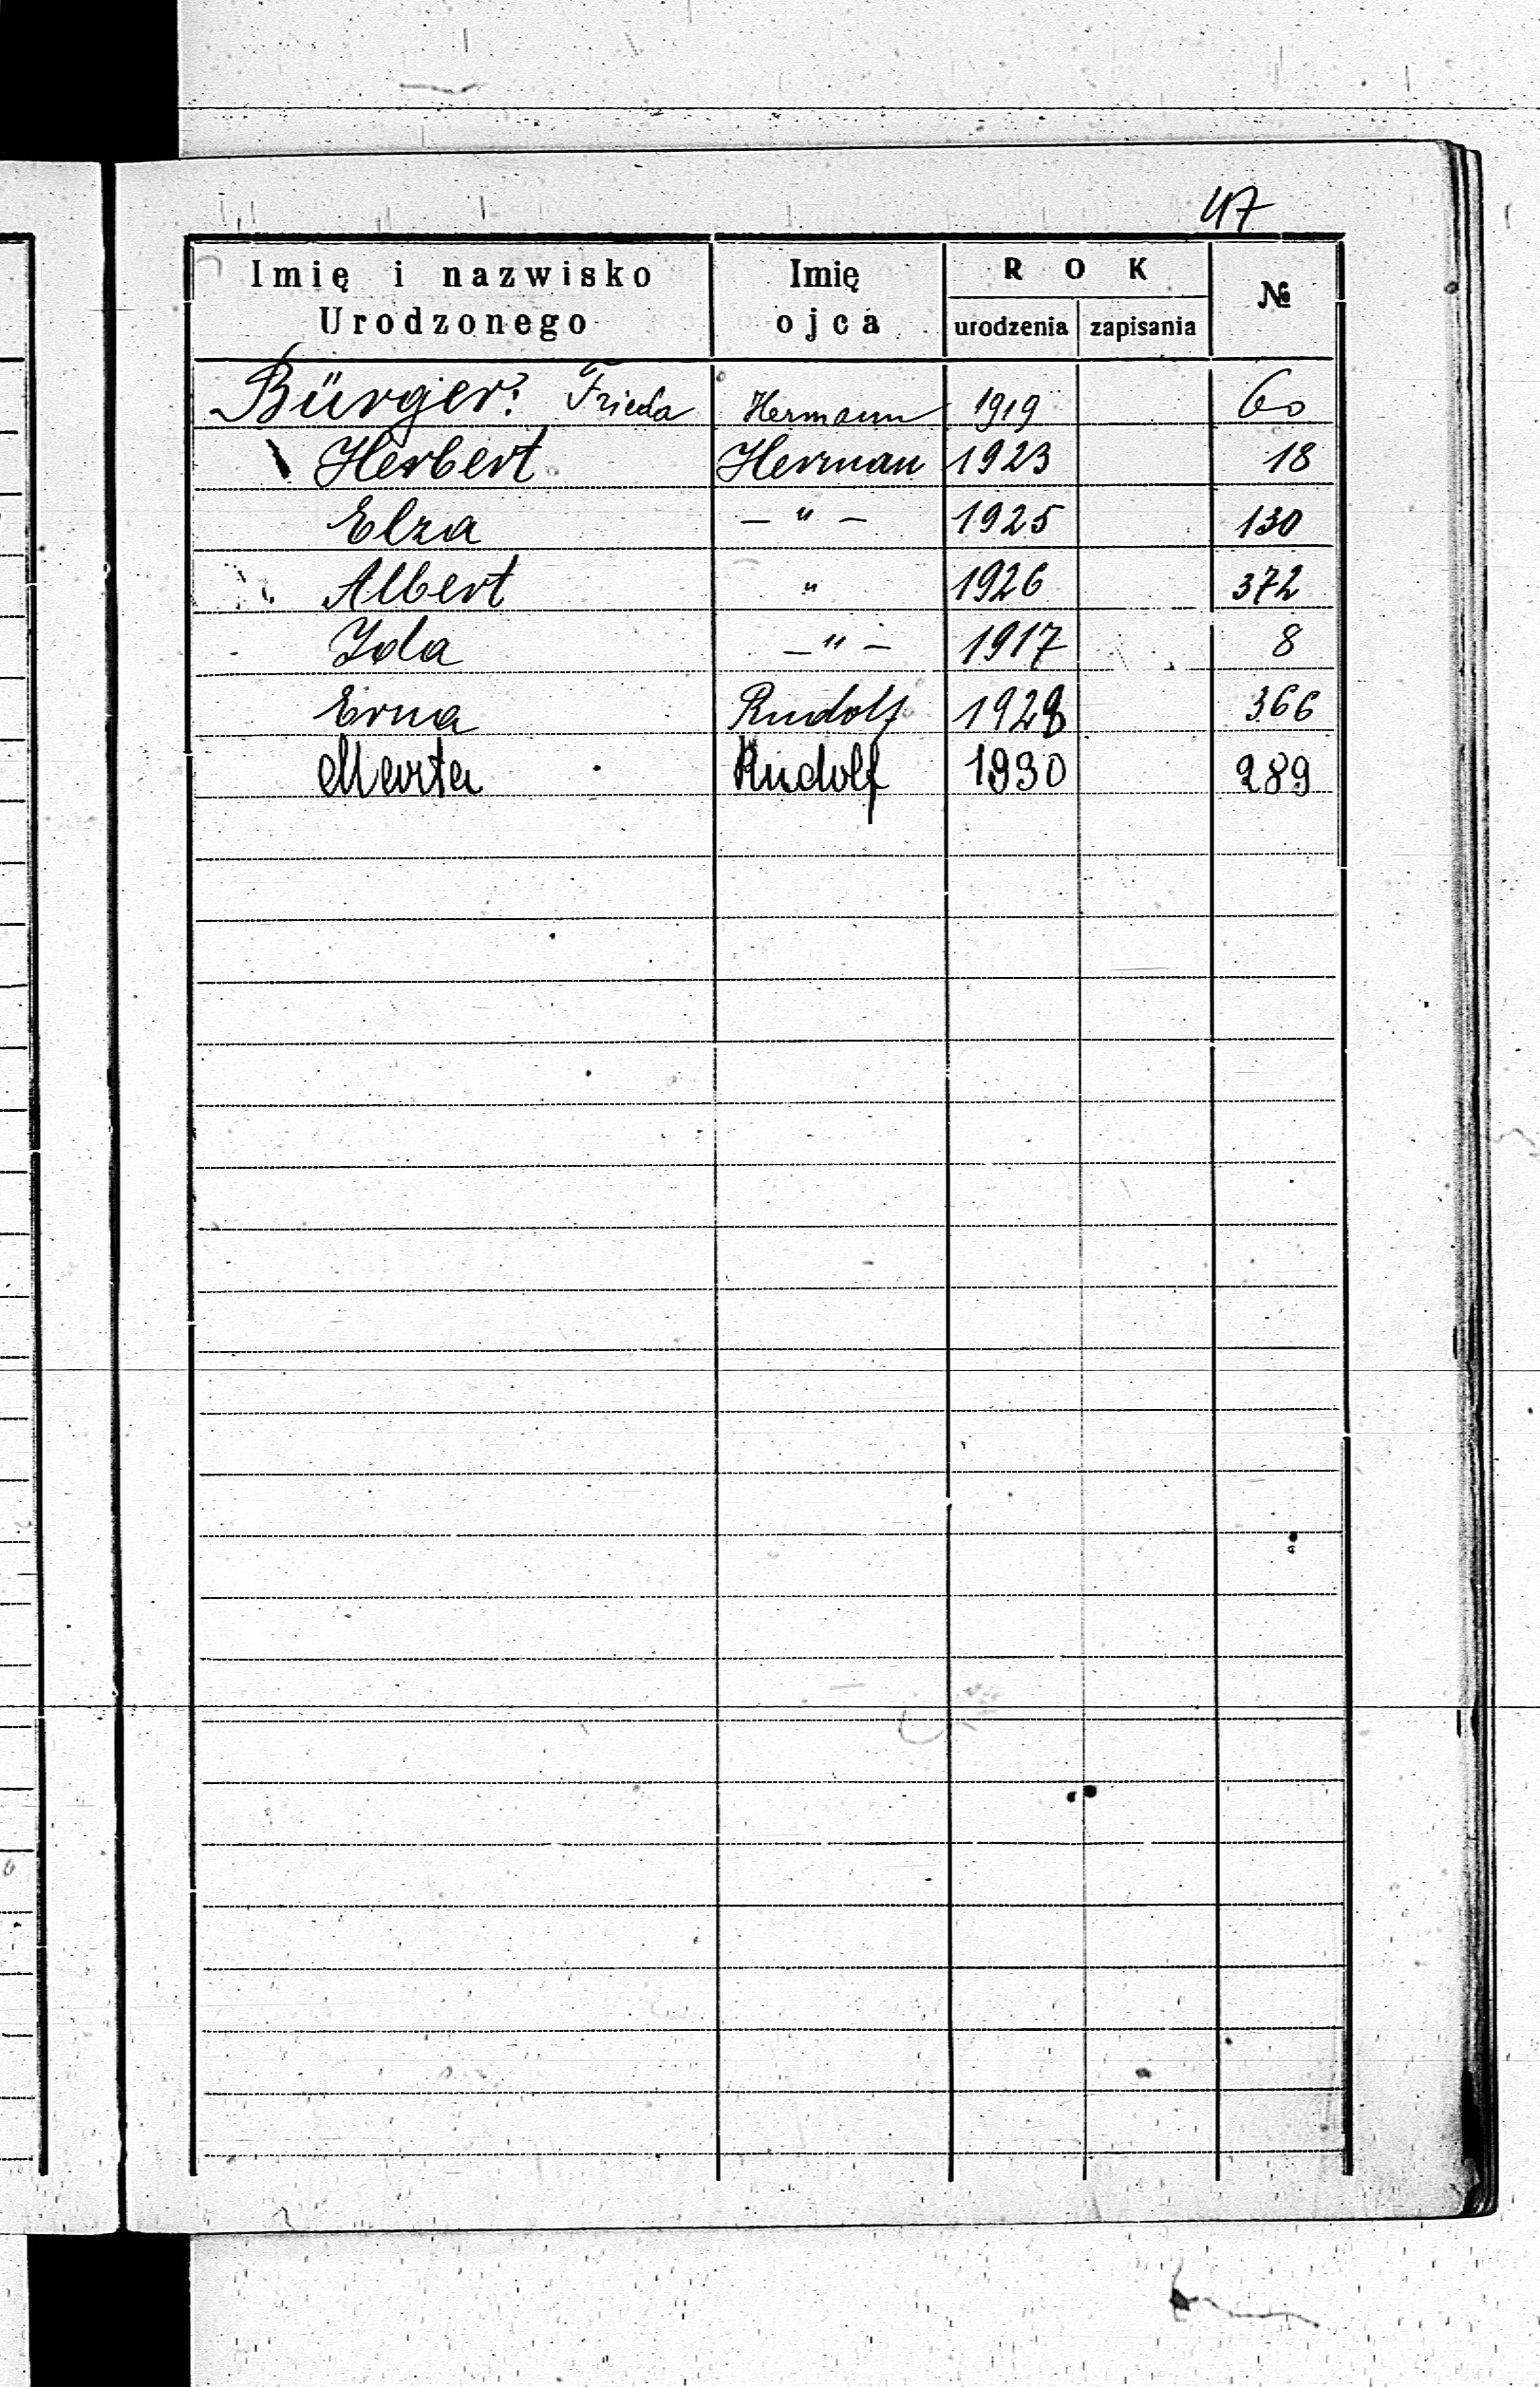 47
Imię i nazwisko Urodzonego Imię ojca ROK urodzenia zapisania №
Bürger: Frieda Hermann 1919 60
Herbert Herman 1923 18
Elza — " — 1925 130
Albert " 1926 372
Ida — " — 1917 8
Erna Rudolf 1928 366
Marta Rudolf 1930 289